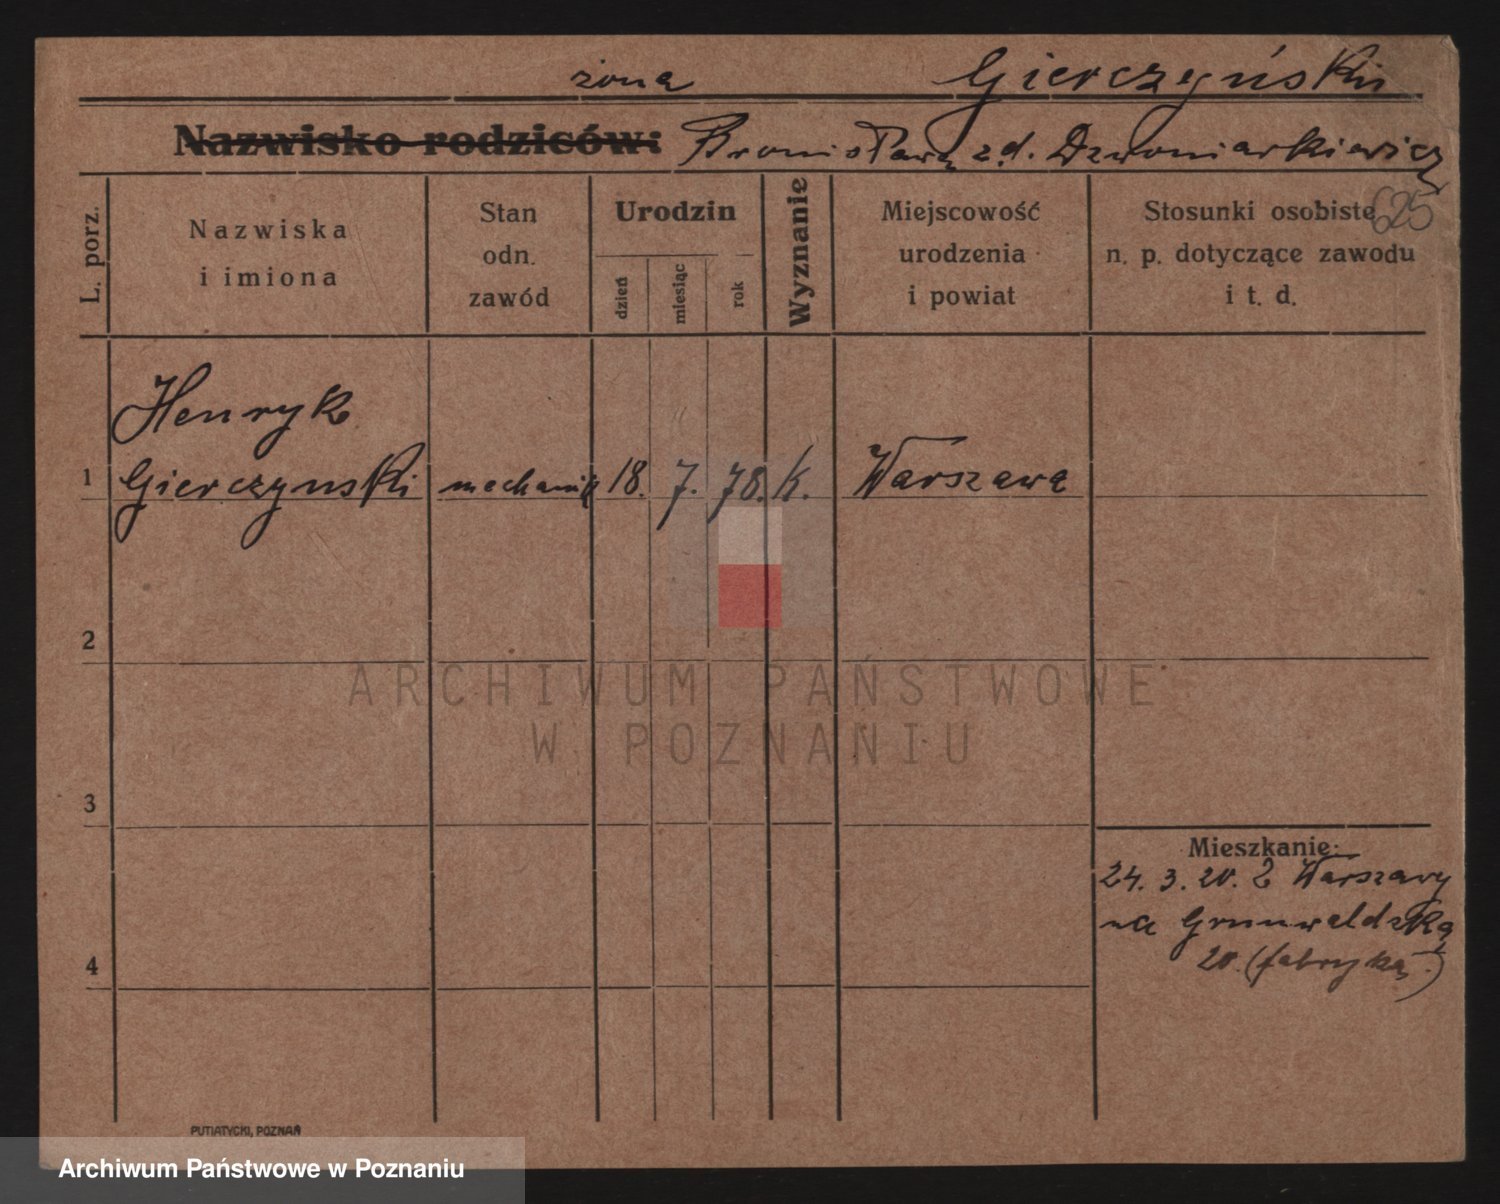 żona Gierczyński
Nazwisko rodziców: Bronisława z d. Dzwoniarkiewicz
625
L. porz.
Nazwiska
i imiona
Stan
odn.
zawód
Urodzin
dzień
miesiąc
rok
Wyznanie
Miejscowość
urodzenia
i powiat
Stosunki osobiste
n. p. dotyczące zawodu
i t. d.
Henryk
1 Gierczynski mechanik 18. 7. 78. k. Warszawa
2
ARCHIWUM PAŃSTWOWE
W POZNANIU
3
Mieszkanie:
24. 3. 20. z Warszawy
na Grunwaldzką
20. (fabryka.)
4
PUTIATYCKI, POZNAŃ
Archiwum Państwowe w Poznaniu